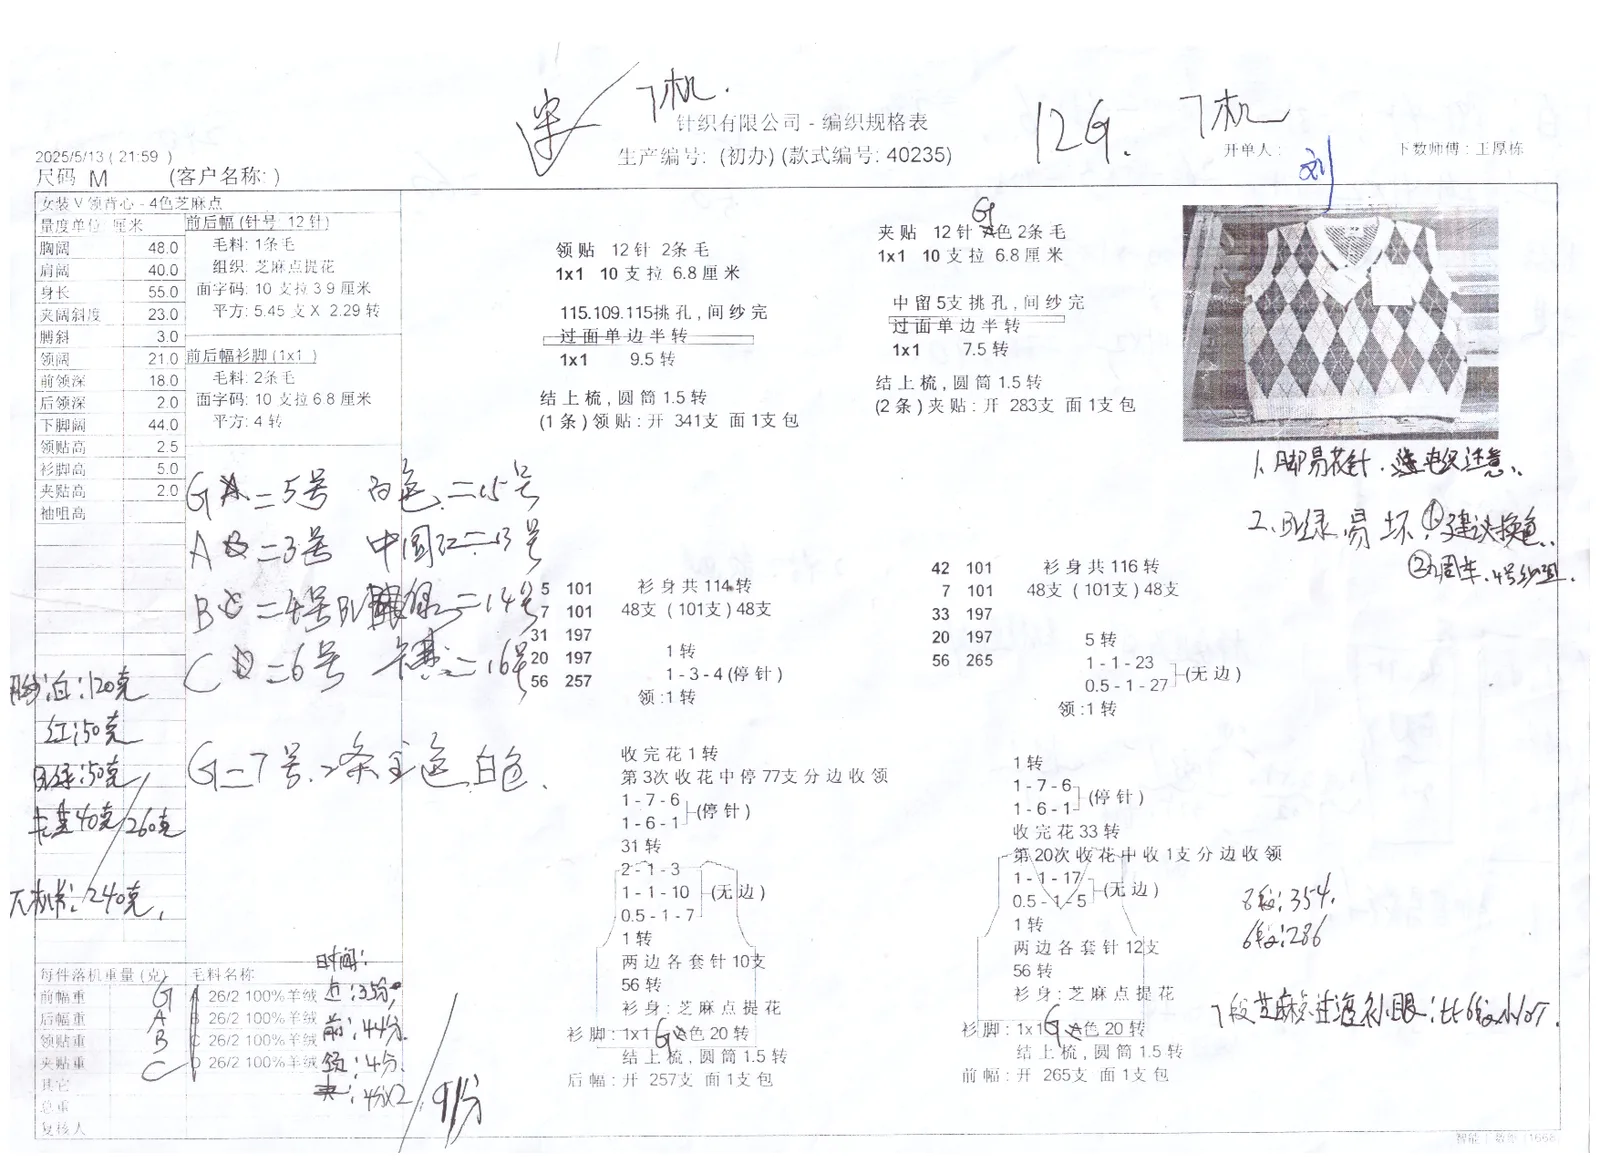 7机.
针织有限公司 - 编织规格表
12G.
7机
2025/5/13 ( 21:59 )
生产编号: (初办) (款式编号: 40235)
开单人:
刘
下数师傅:王厚栋
尺码 M (客户名称: )
女装V领背心 - 4色芝麻点
量度单位 厘米
胸阔 48.0
肩阔 40.0
身长 55.0
夹阔斜度 23.0
膊斜 3.0
领阔 21.0
前领深 18.0
后领深 2.0
下脚阔 44.0
领贴高 2.5
衫脚高 5.0
夹贴高 2.0
袖咀高
前后幅 (针号 12针)
毛料: 1条毛
组织: 芝麻点提花
面字码: 10 支拉 3.9 厘米
平方: 5.45 支 X 2.29 转
前后幅衫脚 (1x1 )
毛料: 2条毛
面字码: 10 支拉 6.8 厘米
平方: 4 转
领贴 12针 2条毛
1x1 10 支拉 6.8 厘米
115.109.115挑孔,间纱完
过面单边半转
1x1 9.5 转
结上梳,圆筒 1.5 转
(1条)领贴:开 341支 面1支包
G
夹贴 12针 色 2条毛
1x1 10 支拉 6.8 厘米
中留5支挑孔,间纱完
过面单边半转
1x1 7.5 转
结上梳,圆筒 1.5 转
(2条)夹贴:开 283支 面1支包
1、脚易花针.
2、BL绿易坏,①建议换色.
G = 5号 白色 = 15号
A = 3号 中国红 = 13号
B = 4号 BL绿 = 14号
C = 6号 = 16号
G = 7号、2条主色白色.
白:120克
红:50克
BL绿:50克
40克
260克
:240克,
5 101
7 101
31 197
20 197
56 257
衫身共 114转
48支 (101支) 48支
1转
1 - 3 - 4 (停针)
领:1转
收完花1转
第3次收花中停77支分边收领
1 - 7 - 6
1 - 6 - 1 (停针)
31转
2 - 1 - 3
1 - 1 - 10 (无边)
0.5 - 1 - 7
1转
两边各套针10支
56转
衫身:芝麻点提花
衫脚:1x1 G色 20转
结上梳,圆筒 1.5 转
后幅:开 257支 面1支包
42 101
7 101
33 197
20 197
56 265
衫身共 116转
48支 (101支) 48支
5转
1 - 1 - 23
0.5 - 1 - 27 (无边)
领:1转
1转
1 - 7 - 6
1 - 6 - 1 (停针)
收完花33转
第20次收花中收1支分边收领
1 - 1 - 17
0.5 - 1 - 5 (无边)
1转
两边各套针12支
56转
衫身:芝麻点提花
衫脚:1x1 G色 20转
结上梳,圆筒 1.5 转
前幅:开 265支 面1支包
8段:354.
6段:286
每件落机重量(克) 毛料名称
前幅重 G 26/2 100%羊绒
后幅重 A 26/2 100%羊绒
领贴重 B C 26/2 100%羊绒
夹贴重 C D 26/2 100%羊绒
其它
总重
复核人
时间:
:35分,
前:44分.
领:4分.
夹:4分X2
91分
智能